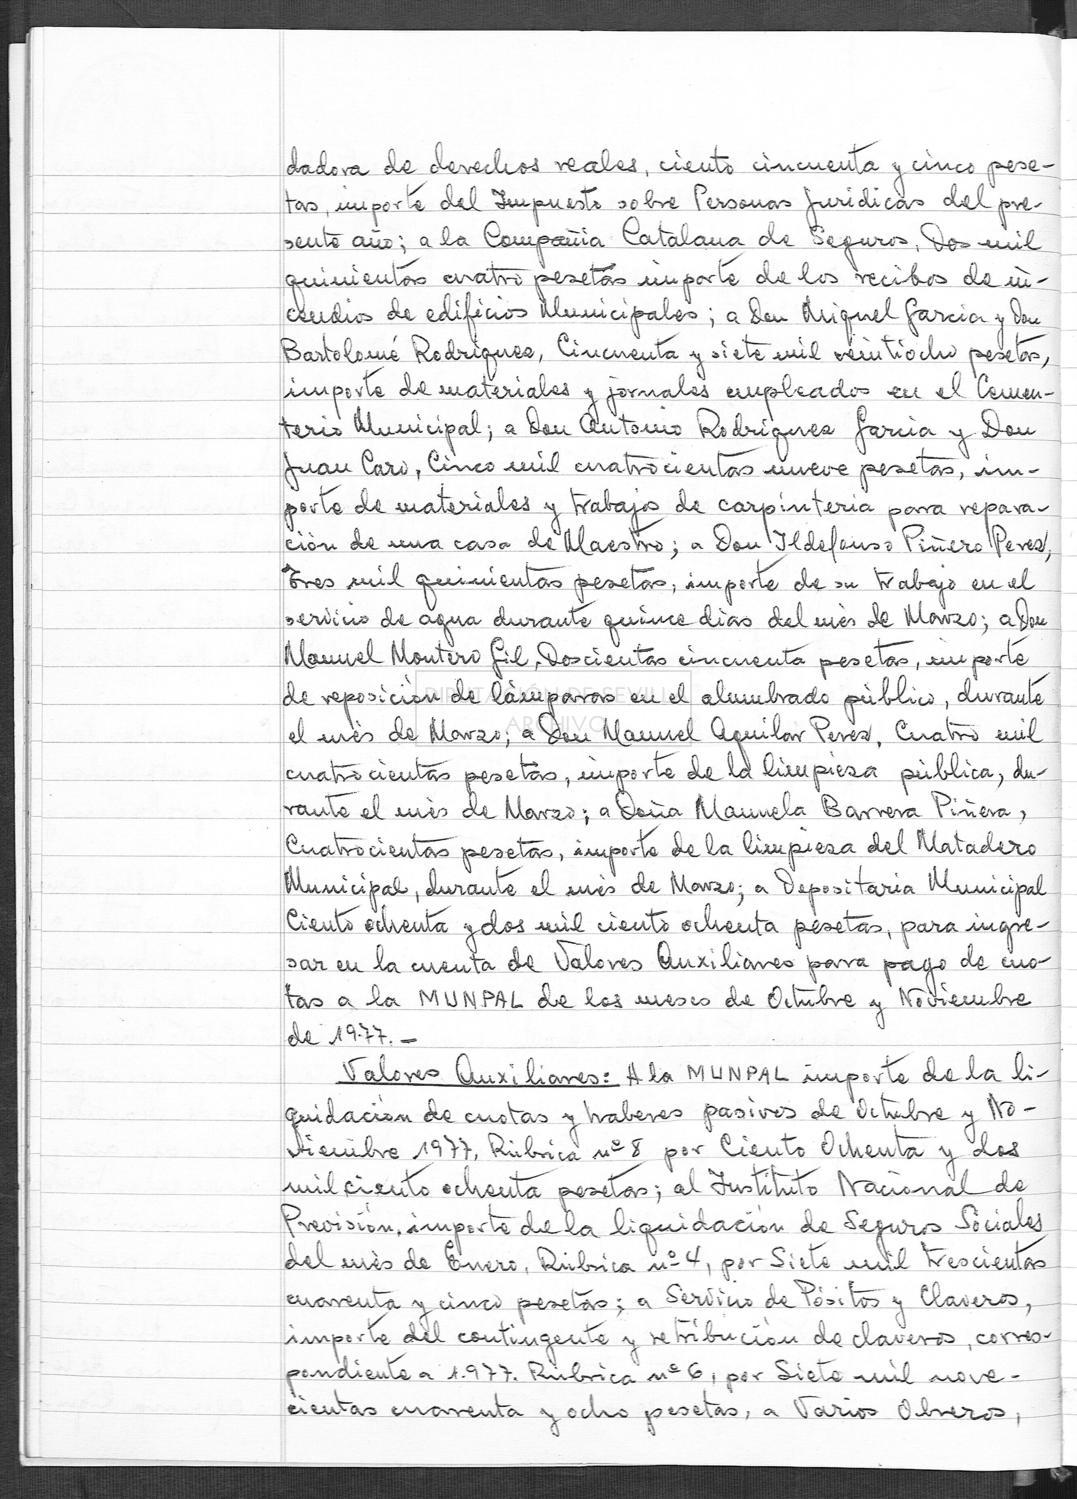 dadora de derechos reales, ciento cincuenta y cinco pese-
tas, importe del Impuesto sobre Personas Jurídicas del pre-
sente año; a la Compañia Catalana de Seguros, Dos mil
quinientas cuatro pesetas importe de los recibos de in-
cendios de edificios Municipales; a Don Miguel Garcia y Don
Bartolomé Rodriguez, Cincuenta y siete mil veintiocho pesetas,
importe de materiales y jornales empleados en el Cemen-
terio Municipal; a Don Antonio Rodriguez Garcia y Don
Juan Caro, Cinco mil cuatrocientas nueve pesetas, im-
porte de materiales y trabajos de carpinteria para repara-
ción de una casa de Maestro; a Don Ildefonso Piñero Perez,
Tres mil quinientas pesetas, importe de su trabajo en el
servicio de agua durante quince dias del mès de Marzo; a Don
Manuel Montero Gil, Doscientas cincuenta pesetas, importe
de reposición de lámparas en el alumbrado público, durante
el mès de Marzo; a Don Manuel Aguilar Perez, Cuatro mil
cuatrocientas pesetas, importe de la limpieza pública, du-
rante el mès de Marzo; a Doña Manuela Barrera Piñera,
Cuatrocientas pesetas, importe de la limpieza del Matadero
Municipal, durante el mès de Marzo; a Depositaria Municipal
Ciento ochenta y dos mil ciento ochenta pesetas, para ingre-
sar en la cuenta de Valores Auxiliares para pago de cuo-
tas a la MUNPAL de los meses de Octubre y Noviembre
de 1977.-
Valores Auxiliares: A la MUNPAL importe de la li-
quidación de cuotas y haberes pasivos de Octubre y No-
viembre 1977, Rúbrica nº 8 por Ciento Ochenta y dos
mil ciento ochenta pesetas; al Instituto Nacional de
Previsión, importe de la liquidación de Seguros Sociales
del mès de Enero, Rúbrica nº 4, por Siete mil trescientas
cuarenta y cinco pesetas; a Servicio de Pósitos y Claveros,
importe del contingente y retribución de claveros, corres-
pondiente a 1.977. Rúbrica nº 6, por Siete mil nove-
cientas cuarenta y ocho pesetas, a Varios Obreros,
DIPUTACIÓN DE SEVILLA
ARCHIVO